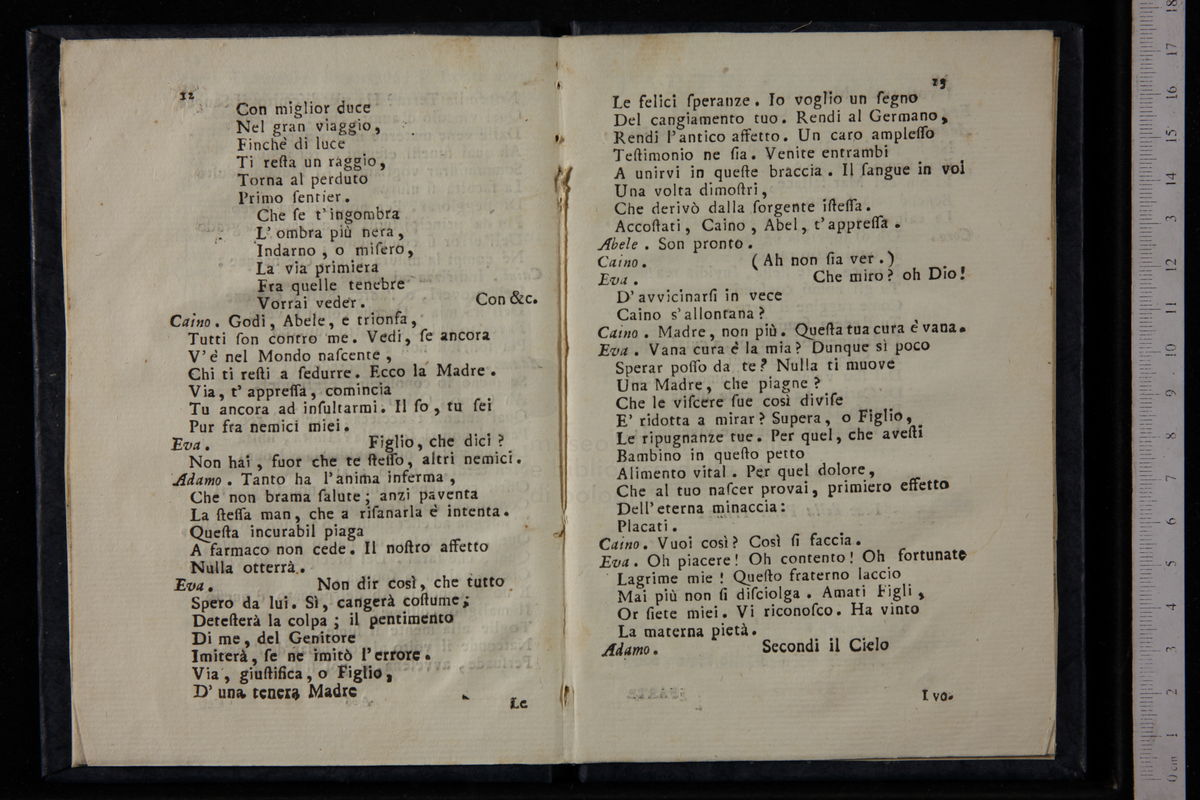 12
Con miglior duce
Nel gran viaggio,
Finchè di luce
Ti reſta un raggio,
Torna al perduto
Primo ſentier.
Che ſe t'ingombra
L'ombra più nera,
Indarno, o miſero,
La via primiera
Fra quelle tenebre
Vorrai veder. Con &c.
Caino. Godi, Abele, e trionfa,
Tutti ſon contro me. Vedi, ſe ancora
V'è nel Mondo naſcente,
Chi ti reſti a ſedurre. Ecco la Madre.
Via, t'appreſſa, comincia
Tu ancora ad inſultarmi. Il ſo, tu ſei
Pur fra nemici miei.
Eva. Figlio, che dici?
Non hai, fuor che te ſteſſo, altri nemici.
Adamo. Tanto ha l'anima inferma,
Che non brama ſalute; anzi paventa
La ſteſſa man, che a riſanarla è intenta.
Queſta incurabil piaga
A farmaco non cede. Il noſtro affetto
Nulla otterrà.
Eva. Non dir così, che tutto
Spero da lui. Sì, cangerà coſtume;
Deteſterà la colpa; il pentimento
Di me, del Genitore
Imiterà, ſe ne imitò l'errore.
Via, giuſtifica, o Figlio,
D'una tenera Madre
Le
13
Le felici ſperanze. Io voglio un ſegno
Del cangiamento tuo. Rendi al Germano,
Rendi l'antico affetto. Un caro ampleſſo
Teſtimonio ne ſia. Venite entrambi
A unirvi in queſte braccia. Il ſangue in voi
Una volta dimoſtri,
Che derivò dalla ſorgente iſteſſa.
Accoſtati, Caino, Abel, t'appreſſa.
Abele. Son pronto.
Caino. (Ah non ſia ver.)
Eva. Che miro? oh Dio!
D'avvicinarſi in vece
Caino s'allontana?
Caino. Madre, non più. Queſta tua cura è vana.
Eva. Vana cura è la mia? Dunque sì poco
Sperar poſſo da te? Nulla ti muove
Una Madre, che piagne?
Che le viſcere ſue così diviſe
E' ridotta a mirar? Supera, o Figlio,
Le ripugnanze tue. Per quel, che aveſti
Bambino in queſto petto
Alimento vital. Per quel dolore,
Che al tuo naſcer provai, primiero effetto
Dell'eterna minaccia:
Placati.
Caino. Vuoi così? Così ſi faccia.
Eva. Oh piacere! Oh contento! Oh fortunate
Lagrime mie! Queſto fraterno laccio
Mai più non ſi diſciolga. Amati Figli,
Or ſiete miei. Vi riconoſco. Ha vinto
La materna pietà.
Adamo. Secondi il Cielo
I vo-
0 cm 1 2 3 4 5 6 7 8 9 10 11 12 13 14 15 16 17 18